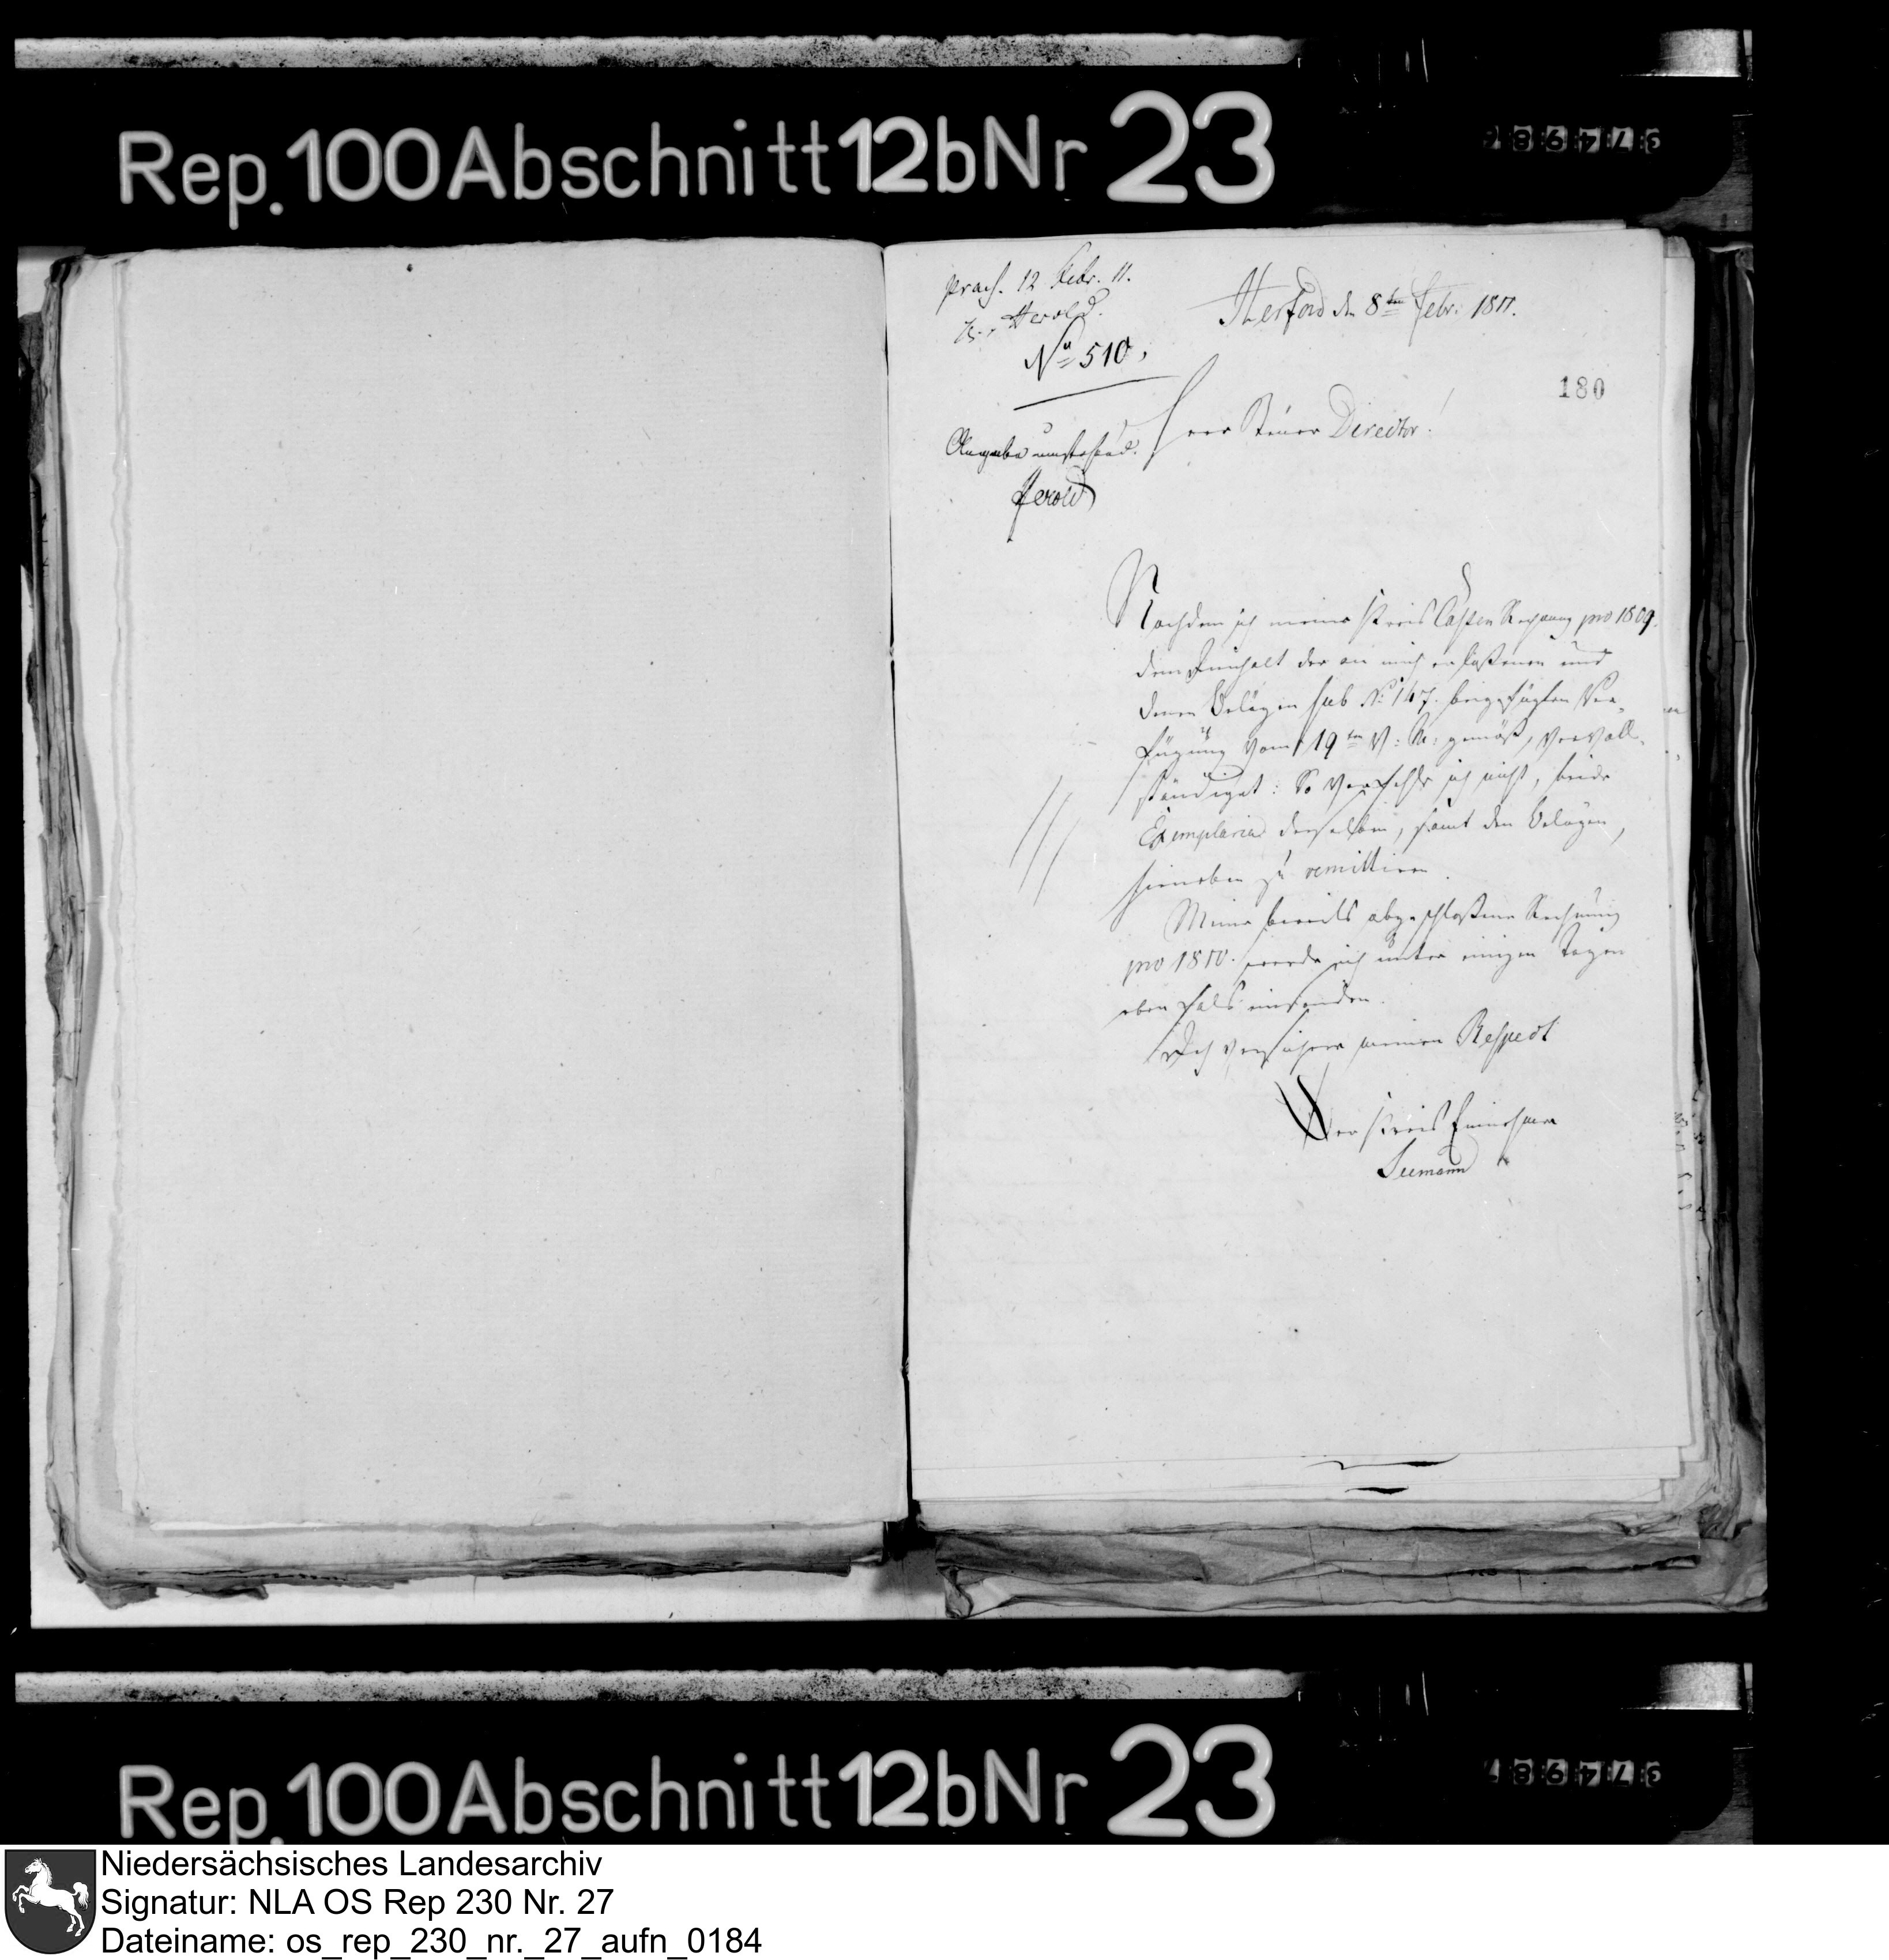 Rep. 100 Abschnitt 12b Nr 23
praes. 12 Febr. 11.
Herold.
No 510.
Herford den 8ten Febr. 1811.
180
Herr Steuer Director!
umstehend.
Herold
Nachdem ich meine Kreis Cassen Rechnung pro 1809.
dem Innhalt der an mich erlaßenen und
denen Belägen sub No 147. beigefügten Ver-
fügung vom 19ten v: M: gemäß, vervoll-
ständiget: So verfehle ich nicht, beide
Exemplaria derselben, samt den Belägen,
hierneben zu remittiren.
Meine bereits abgeschloßene Rechnung
pro 1810. werde ich unter einigen Tagen
eben fals einsenden.
Ich versichere meinen Respect
Der Kreis Einnehmer
Seemann
Rep. 100 Abschnitt 12b Nr 23
Niedersächsisches Landesarchiv
Signatur: NLA OS Rep 230 Nr. 27
Dateiname: os_rep_230_nr._27_aufn_0184